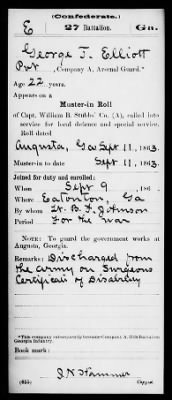 (Confederate.)
E 27 Battalion. Ga.
George T. Elliott
Pvt, Company A, Arsenal Guard.*
Age 22 years.
Appears on a
Muster-in Roll
of Capt. William B. Stubbs' Co. (A), called into
service for local defence and special service.
Roll dated
Augusta, Ga Sept 11, 1863.
Muster-in to date Sept 11, 1863.
Joined for duty and enrolled:
When Sept 9, 186
Where Eatonton, Ga
By whom Lt. B. F. Johnson
Period For the War
NOTE: To guard the government works at
Augusta, Georgia.
Remarks: Discharged from
the army on Surgeons
Certificate of Disability
*This company subsequently became Company A, 27th Battalion
Georgia Infantry.
Book mark:
J N Hammer
(655) Copyist.